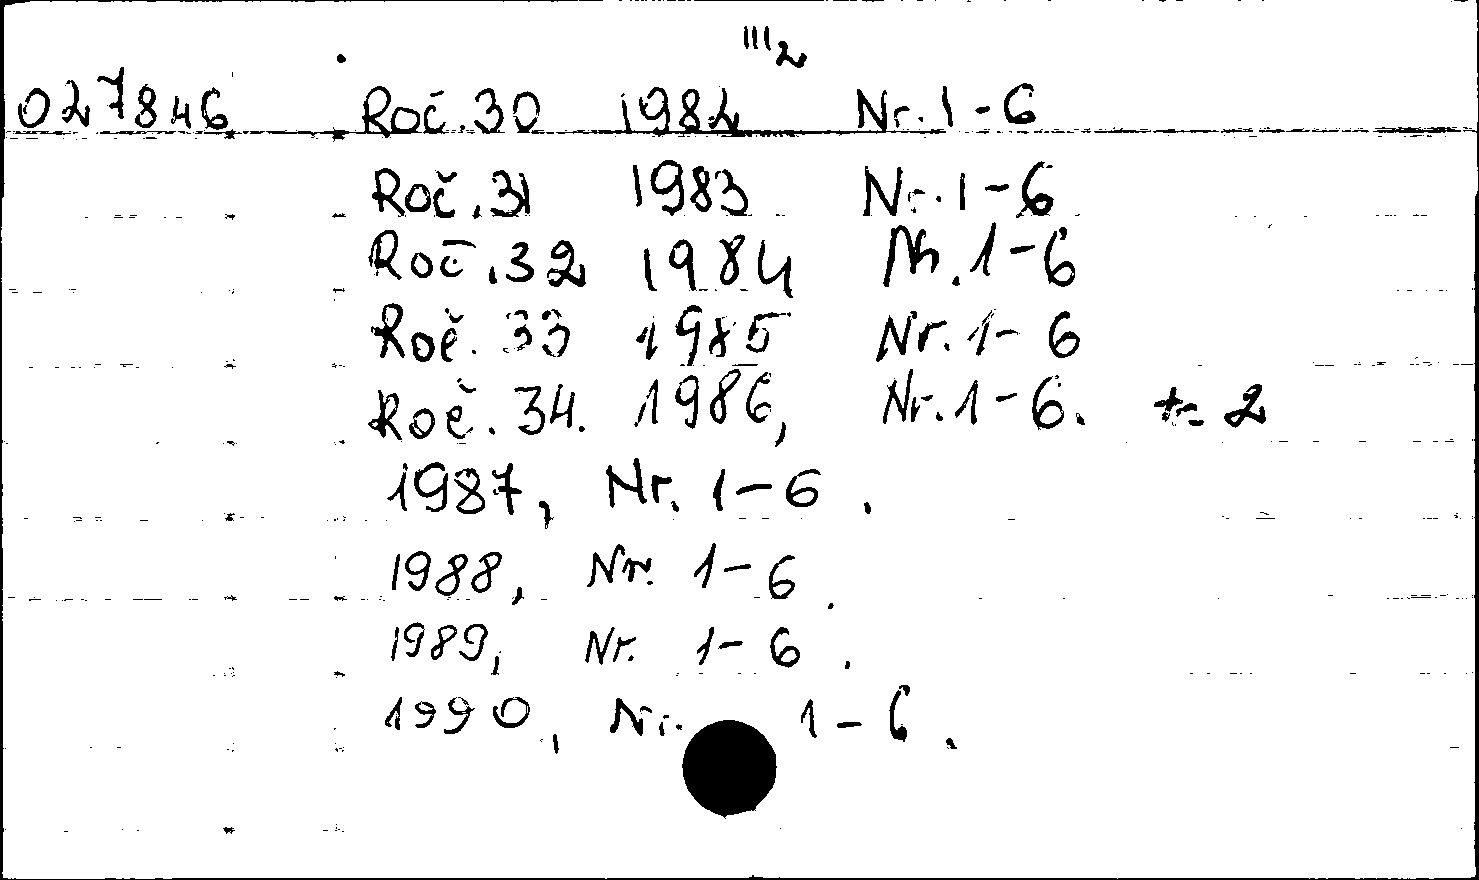 III 2
027846 Roč. 30 1982 Nr. 1-6
Roč. 31 1983 Nr. 1-6
Roč. 32 1984 Nr. 1-6
Roč. 33 1985 Nr. 1-6
Roč. 34. 1986, Nr. 1-6. 2
1987, Nr. 1-6.
1988, Nr. 1-6.
1989, Nr. 1-6.
1990, Nr. 1-6.